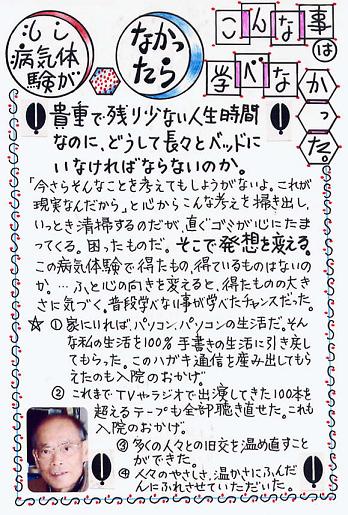 もし
病気体
験が
なかっ
たら
こんな事
は
学べな
かっ
た。
貴重で残り少ない人生時間
なのに、どうして長々とベッドに
いなければならないのか。
「今さらそんなことを考えてもしようがないよ。これが
現実なんだから」と心からこんな考えを掃き出し、
いっとき清掃するのだが、直ぐゴミが心にたま
ってくる。困ったものだ。そこで発想を変える。
この病気体験で得たもの、得ているものはないの
か。…ふと心の向きを変えると、得たものの大き
さに気づく。普段学べない事が学べたチャンスだった。
☆ ①家にいれば、パソコン、パソコンの生活だ。そん
な私の生活を100%手書きの生活に引き戻し
てもらった。このハガキ通信を産み出してもら
えたのも入院のおかげ。
② これまでTVやラジオで出演してきた100本を
超えるテープも全部聴き直せた。これも
入院のおかげ。
③ 多くの人々との旧交を温め直すこと
ができた。
④ 人々のやさしさ、温かさにふんだ
んにふれさせていただいた。